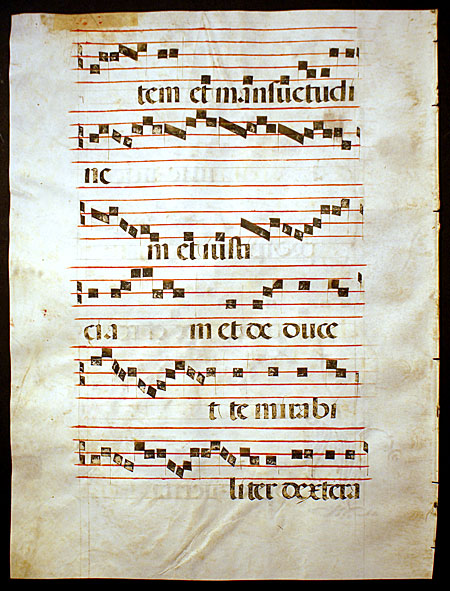 tem et mansuetudi
ne
m et iusti
cia m et de duce
t te mirabi
liter dextera